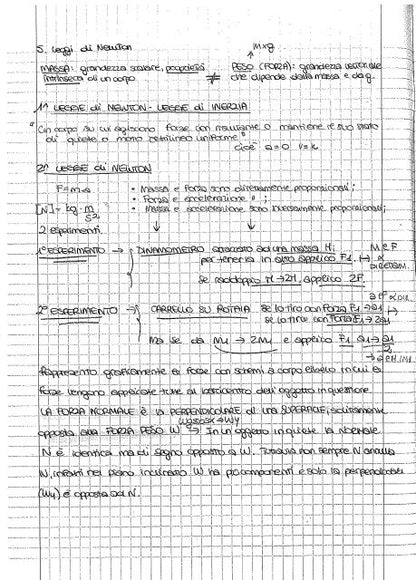 5. Leggi di Newton
m×g
MASSA: grandezza scalare, proprietà
intrinseca di un corpo
≠
PESO (FORZA): grandezza vettoriale
che dipende dalla massa e da g.
1ª LEGGE di NEWTON - LEGGE di INERZIA
"Un corpo su cui agiscono forze con risultante 0 mantiene il suo stato
di quiete o moto rettilineo uniforme"
cioè a=0 v=k
2ª LEGGE di NEWTON
F=m·a
• Massa e Forza sono direttamente proporzionali;
• Forza e accelerazione " ;
[N]= kg·m/s²
• Massa e accelerazione sono inversamente proporzionali;
2 esperimenti.
1° ESPERIMENTO → DINAMOMETRO attaccato ad una massa M;
per tenerla in applico F1.
M e F
DIRETTAM.
Se raddoppio M→2M, applico 2F.
2° ESPERIMENTO → CARRELLO SU ROTAIA Se lo tiro con Forza F1→a1
se lo tiro con Forza 2F1→2a1
Ma se da M1 → 2M1 e applico F1 a1→a1/2
Rappresento graficamente le forze con schemi a corpo libero in cui le
forze vengono applicate tutte al baricentro dell'oggetto in questione.
LA FORZA NORMALE È LA PERPENDICOLARE di una SUPERFICIE, solitamente
opposta alla FORZA PESO W → In un oggetto in quiete la Normale
N è identica ma di segno opposto a W. Tuttavia non sempre N annulla
W, infatti nel piano inclinato W ha più componenti e solo la perpendicolare
(Wy) è opposta ad N.